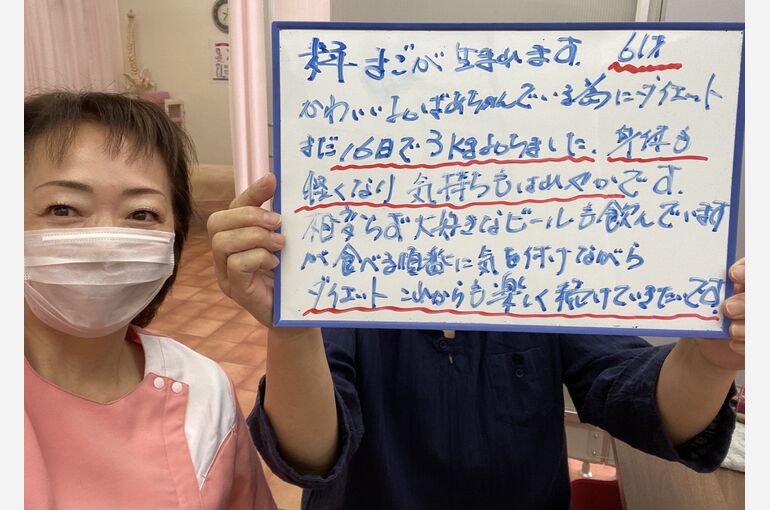 まごが生まれます. 61才
かわいいおばあちゃんでいる為にダイエット
まだ16日で3Kgおちました. 身体も
軽くなり 気持ちもはれやかです.
相変らず大好きなビールも飲んでいます
が食べる順番に気を付けながら
ダイエットこれからも楽しく続けていきたいです!